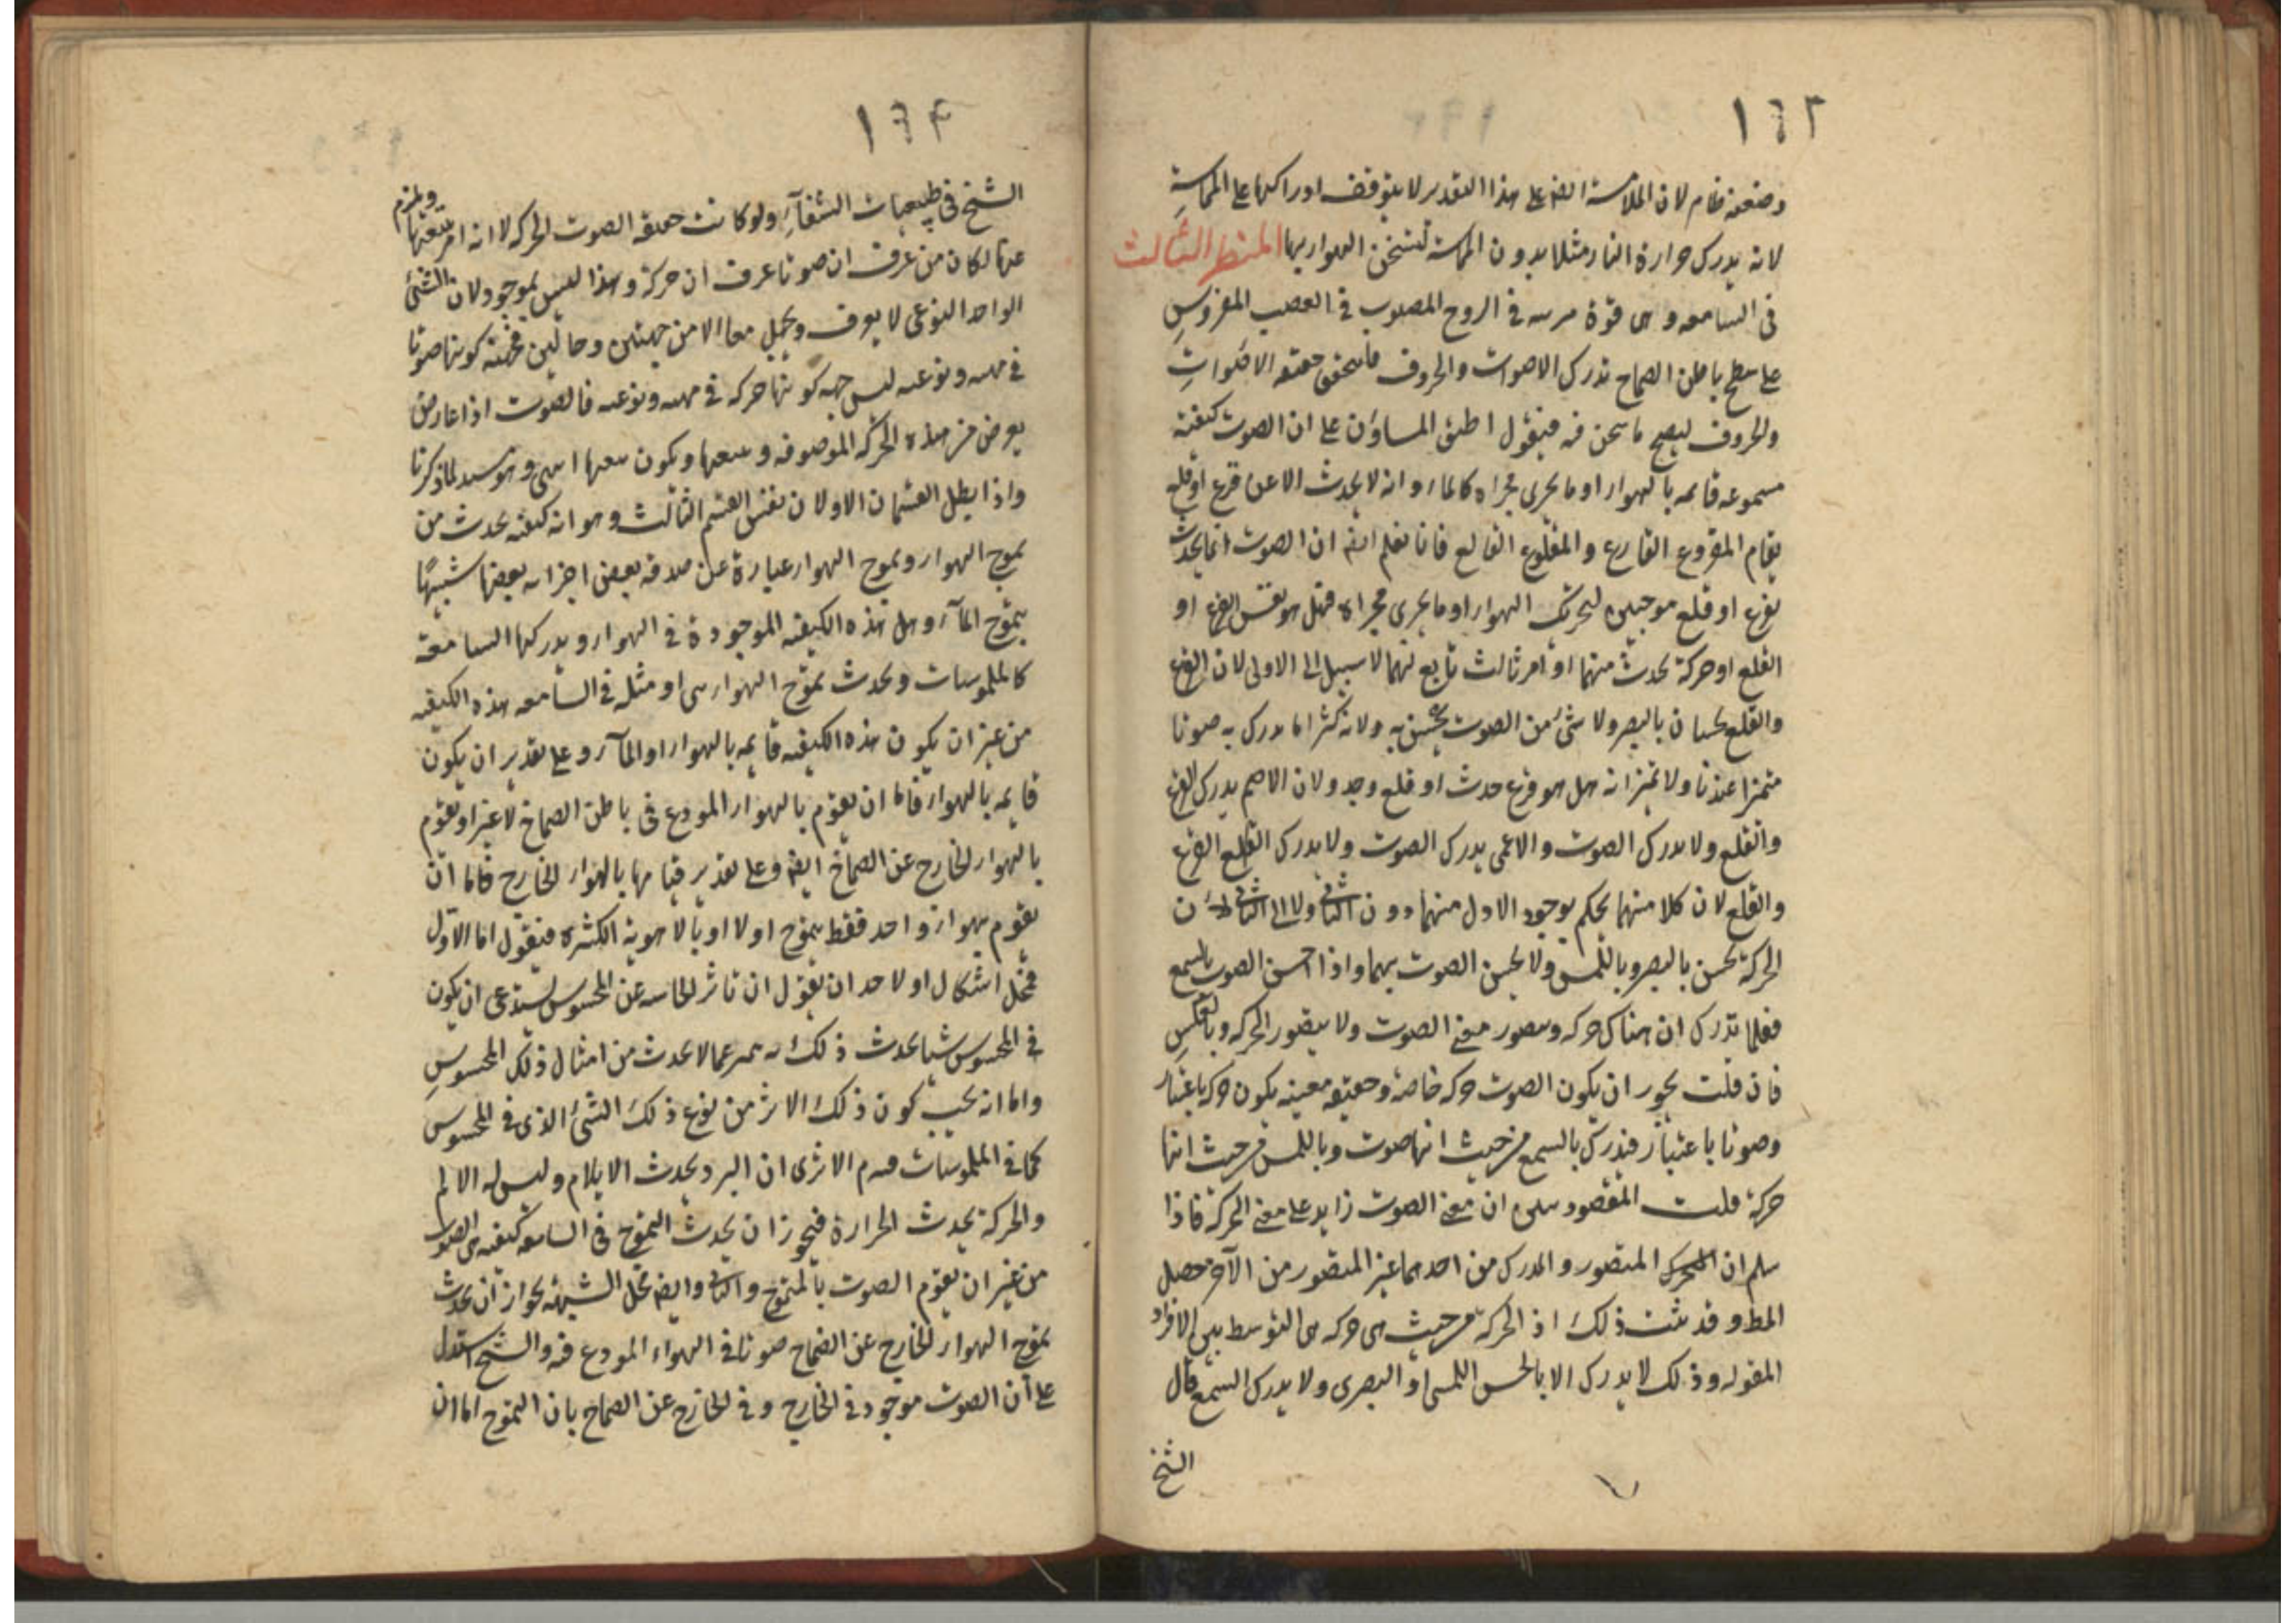 ١٦٣
وضعفه ظاهر لان الملامسة ايضا على هذا التقدير لا يتوقف ادراكها على المماسة
لانه يدرك حرارة النار مثلا بدون المماسة لتسخن الهواء بها المنظر الثالث
فى السامعه وهى قوة مرتبه فى الروح المصبوب فى العصب المفروس
على سطح باطن الصماخ تدرك الاصوات والحروف حقيقه الاصوات
والحروف ما نحن فيه فنقول على ان الصوت كيفية
مسموعه قايمه بالهواء او ما يجرى مجراه كالماء وانه لا يحدث الا عن قرع او قلع
يقاوم المقروع القارع والمقلوع القالع فانا نعلم ايضا ان الصوت انما يحدث
بقرع او قلع موجبين لتحريك الهواء او ما يجرى مجراه فهل هو نفس القرع او
القلع او حركة تحدث منهما او امر ثالث تابع لهما لا سبيل الى الاولى لان القرع
والقلع يحسان بالبصر ولا شئ من الصوت يحس به ولانه كثيرا ما يدرك به صوتا
متميزا عندنا ولا نميز انه هل هو قرع حدث او قلع وجد ولان الاصم يدرك القرع
والقلع ولا يدرك الصوت والاعمى يدرك الصوت ولا يدرك القرع
والقلع لان كلا منهما يحكم بوجود الاول منهما دون الثانى ولا الى الثانى لان
الحركة تحس بالبصر وباللمس ولا يحس الصوت بهما واذا احس الصوت بالسمع
فقلما تدرك ان هناك حركه ويتصور معنى الصوت ولا يتصور الحركه وبالعكس
فان قلت يجوز ان يكون الصوت حركه خاصة وحقيقه معينه يكون حركه باعتبار
وصوتا باعتبار فيدرك بالسمع من حيث انها صوت وباللمس من حيث انها
حركة قلت المقصود ان معنى الصوت زايد على معنى الحركة فاذا
سلم ان المتصور والمدرك من احدهما غير المتصور من الآخر حصل
المط وقد ثبت ذلك اذ الحركة من حيث هى حركه هى التوسط بين الافراد
المقوله وذلك لا يدرك الا بالحس اللمسى او البصرى ولا يدرك السمع قال
الشيخ
١٦٤
الشيخ فى طبيعيات الشفآء ولو كانت حقيقه الصوت الحركه لا انه امر يتبعها ويلزم
عنها لكان من عرف ان صوتا عرف ان حركة وهذا ليس بموجود لان الشئ
الواحد النوعى لا يعرف ويجهل معا الا من جهتين وحالين فجهة كونها صوتا
فى مهيته ونوعيته ليس جهه كونها حركه فى مهيته ونوعيته فالصوت اذا عارض
يعرض من هذه الحركه الموصوفه ويتبعها ويكون معها انتهى وهو لما ذكرنا
واذا بطل القسمان الاولان تعين القسم الثالث وهو انه كيفيه تحدث من
تموج الهواء وتموج الهواء عبارة عن صدمه بعض اجزائه بعضها شبيها
بتموج المآء وهل هذه الكيفيه الموجودة فى الهواء ويدركها السامعه
كالملموسات ويحدث تموج الهواء فى السامعه هذه الكيفيه
من غير ان يكون هذه الكيفيه قايمه بالهواء او المآء وعلى تقدير ان يكون
قايمه بالهواء فاما ان يقوم بالهواء المودع فى باطن الصماخ لا غير او يقوم
بالهواء الخارج عن الصماخ ايضا وعلى تقدير قيامها بالهواء الخارج فاما ان
يقوم بهواء واحد فقط يتموج اولا او بالاهوية الكثيره فنقول اما الاول
فمحل اشكال اذ لاحد ان يقول ان تاثر الحاسه عن المحسوس يستدعى ان يكون
فى المحسوس شيئا يحدث ذلك لا يحدث من امثال ذلك المحسوس
واما انه يجب كون ذلك الاثر من نوع ذلك الشئ الذى فى المحسوس
كما فى الملموسات الا ترى ان البرد يحدث الايلام وليس له الالم
والحركة يحدث الحرارة فيجوز ان يحدث التموج فى السامعه كيفيه هى الصوت
من غير ان يقوم الصوت بالمتموج والثانى ايضا محل الشبهه لجواز ان يحدث
تموج الهواء الخارج عن الصماخ صوتا فى الهواء المودع فيه والشيخ استدل
على ان الصوت موجود فى الخارج وفى الخارج عن الصماخ بان التموج اما ان